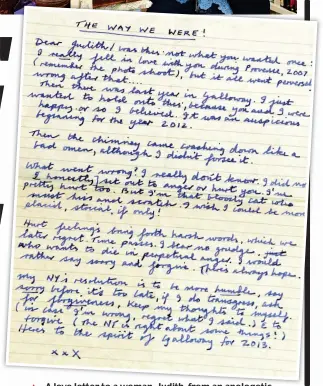 THE WAY WE WERE!
Dear Judith, / was this: not what you wanted once:
I really fell in love with you during Provesse, 2007
(remember the photo shoot), but it all went perverse!
wrong after that.
Then there was last year in Galloway. I just
wanted to hold onto this, because you and I were
happy or so I believed. It was an auspicious
beginning for the year 2012.
Then the chimney came crashing down like a
bad omen, although I didn't forsee it.
What went wrong? I really don't know. I did no
I honestly set out to anger or hurt you. I'm
pretty hurt too. But I'm that bloody cat who
must hiss and scratch. I wish I could be more
placid, stoical, if only!
Hurt feelings bring forth harsh words, which we
later regret. Time passes. I bear no grudges. just
who wants to die in perpetual anger. I would
rather say sorry and forgive. There's always hope.
My NY's resolution is to be more humble, say
sorry before it's too late, if I do transgress, ask
for forgiveness, keep my thoughts to myself.
(in case I'm wrong, regret what I said.) & to
forgive. (The NT is right about some things!)
Here's to the spirit of Galloway for 2013.
x x X
A love letter to a woman, Judith, from an apologetic